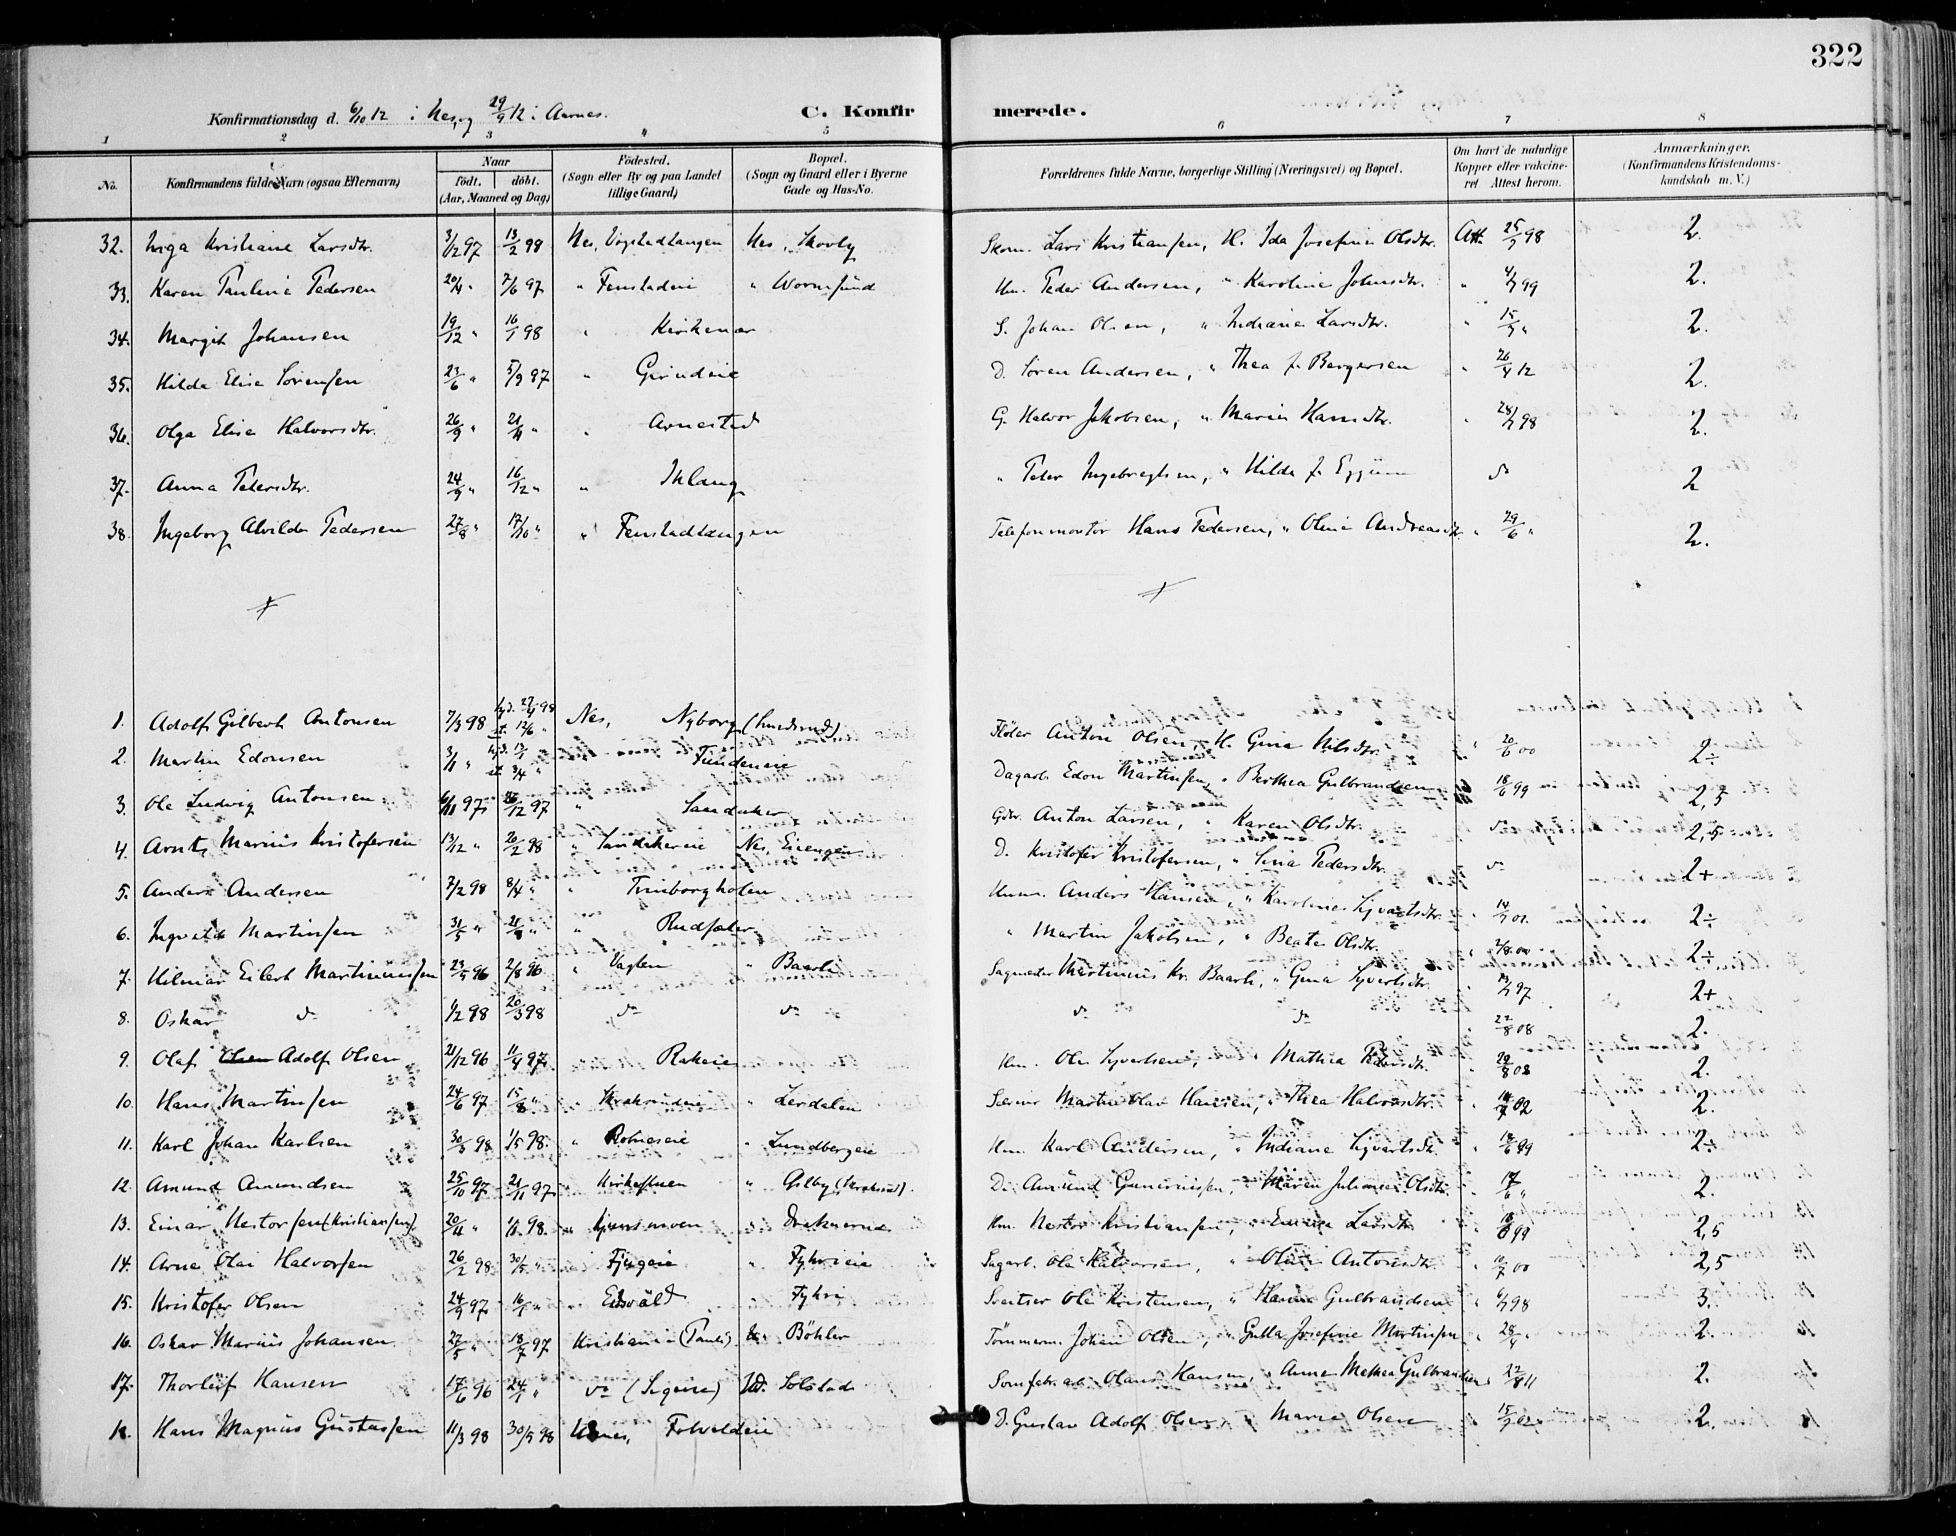 322
Konfirmationsdag d. 6/10 12 i Nes, og 29/9 12 i Aarnes. C. Konfirmerede.
1 2 3 " 5 6 7 8
No. Konfirmandens fulde Navn (ogsaa Efternavn) Naar født. døbt. (Aar, Maaned og Dag) Fødested. (Sogn eller By og paa Landet tillige Gaard) Bopæl. (Sogn og Gaard eller i Byerne Gade og Hus-No. Forældrenes fulde Navne, borgerlige Stilling (Næringsvei) og Bopæl. Om havt de naturlige Kopper eller vakcineret. Attest herom. Anmærkninger. (Konfirmandens Kristendomskundskab m. V.)
32. Inga Kristiane Larsdtr. 3/12 97 13/2 98 Nes, Vogstadtangen Nes, Skovly Skom. Lars Kristiansen, H. Ida Josefine Olsdtr. Att. 25/7 98 2.
33. Karen Pauline Pedersen 20/4 " 7/6 97 " Fenstadeie " Wormsund Hm. Peder Andersen, " Karoline Johnsdtr. " 4/7 99 2.
34. Margit Johansen 19/12 " 16/1 98 " Kirkenær S. Johan Olsen, " Indiane Larsdtr. " 15/7 " 2.
35. Hilda Elise Sørensen 23/6 " 5/9 97 " Grindeie D. Søren Andersen, " Thea f. Bergersen " 26/4 12 2.
36. Olga Elise Halvorsdtr. 26/9 " 21/11 " " Arnestad G. Halvor Jakobsen, " Marie Hansdtr. " 28/7 98 2.
37. Anna Petersdtr. 24/9 " 16/12 " " Ihlang " Peter Ingebregtsen, " Hilda f. Eggum do 2
38. Ingeborg Alvilda Pedersen 27/8 " 17/10 " " Fenstadtangen Telefonmontør Hans Pedersen, " Oline Andreasdtr. " 29/6 " 2.
1. Adolf Gilbert Antonsen 7/3 98 hjd. 27/4 98 st. 12/6 " Nes, Nyborg (Lundsrud) Fløder Anton Olsen, H. Gina Nilsdtr. " 20/6 00 2÷
2. Martin Edonsen 3/1 " st. 3/4 " Fundeneie Dagarb. Edon Martinsen, " Berthea Gulbrandsen 18/6 99 2,5
3. Ole Ludvig Antonsen 97 26/12 97 " Sandaker Gdbr. Anton Larsen, " Karen Olsdtr. do 2,5
4. Arnt Marius Kristofersen 13/12 " 20/2 98 " Sandakereie Nes, Eiengen D. Kristofer Kristofersen, " Lina Pedersdtr. do 2+
5. Anders Andersen 7/2 98 8/4 " " Finborgholen Husm. Anders Hansen, " Karoline Syvertsdtr. " 14/7 01. 2÷
6. Ingvald Martinsen 31/5 " 21/8 " " Rudsæter " Martin Jakobsen, " Beate Olsdtr. " 2/8 00 2÷
7. Hilmar Eilert Martiniussen 23/5 96 2/8 96 " Vaglen " Baarli Sagmester Martinius Kr. Baarli, " Gina Syvertsdtr. " 13/7 97 2+
8. Oskar do 1/2 98 20/3 98 do do do do " 22/8 08 2.
9. Olaf Olsen Adolf Olsen 21/12 96 11/4 97 " Rakeie Hm. Ole Syvertsen, " Mathea Pedersdtr. " 29/8 08 2.
10. Hans Martinsen 24/6 97 15/8 " " " Lerdalen Martin Olav Hansen, " Thea Halvorsdtr. " 02 2.
11. Karl Johan Karlsen 30/3 98 1/5 98. " Rotneseie " Lundbergeie Hm. Karl Andersen, " Indiane Syvertsdtr. " 18/6 99 2÷
12. Amund Amundsen 25/10 97 21/11 97. " " D. Amund Gunerius sen, " Maren Julianne Olsdtr. " 17/6 " 2.
13. Einar Nestorsen (Kristiansen) 20/11 " 98. " " Hm. Nestor Kristiansen, " Larsdtr. " 99 2,5
14. Arne Olai Halvorsen 26/2 98 30/5 " " " Fyhrieie Sagarb. Ole Halvorsen, " Antonsdtr. " 00 2,5
15. Kristofer Olsen 24/9 97 16/ " Eidsvåld " Fyhri Sveitser Ole Kristensen, " Hanna Gulbrandsen " 6/7 98 3.
16. Oskar Marius Johansen 27/5 " 18/7 97 Kristiania (Pauli) Nes. Bøhler Tømmerm. Johan Olsen, " Gulla Josefine Martinsen " 25/4 " 2.
17. Thorleif Hansen 17/6 96 24/ " do Solstad Olaus Hansen, " Anne Mathea Gulbrandsen " 22/8 11 2.
18. Hans Magnus Gustavsen 11/3 98 30/5 98 Udnes, D. Gustav Adolf Olsen, " Marie Olsen " 15/7 02 2.